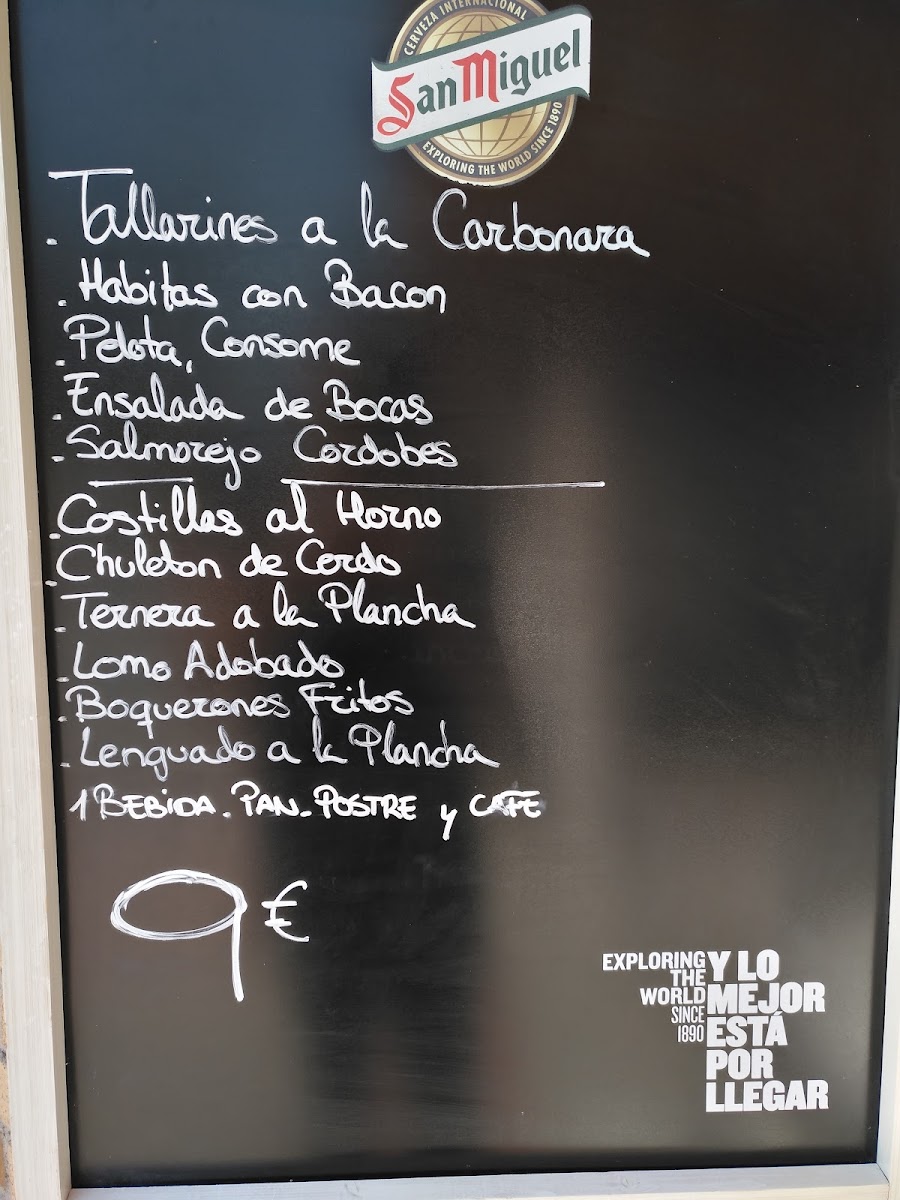 CERVEZA INTERNACIONAL
San Miguel
EXPLORING THE WORLD SINCE 1890
. Tallarines a la Carbonara
. Habitas con Bacon
. Pelota, Consome
. Ensalada de Bocas
. Salmorejo Cordobes
. Costillas al Horno
. Chuleton de Cerdo
. Ternera a la Plancha
. Lomo Adobado
. Boquerones Fritos
. Lenguado a la Plancha
1 BEBIDA. PAN. POSTRE y CAFE
9 €
EXPLORING
THE
WORLD
SINCE
1890
Y LO
MEJOR
ESTÁ
POR
LLEGAR